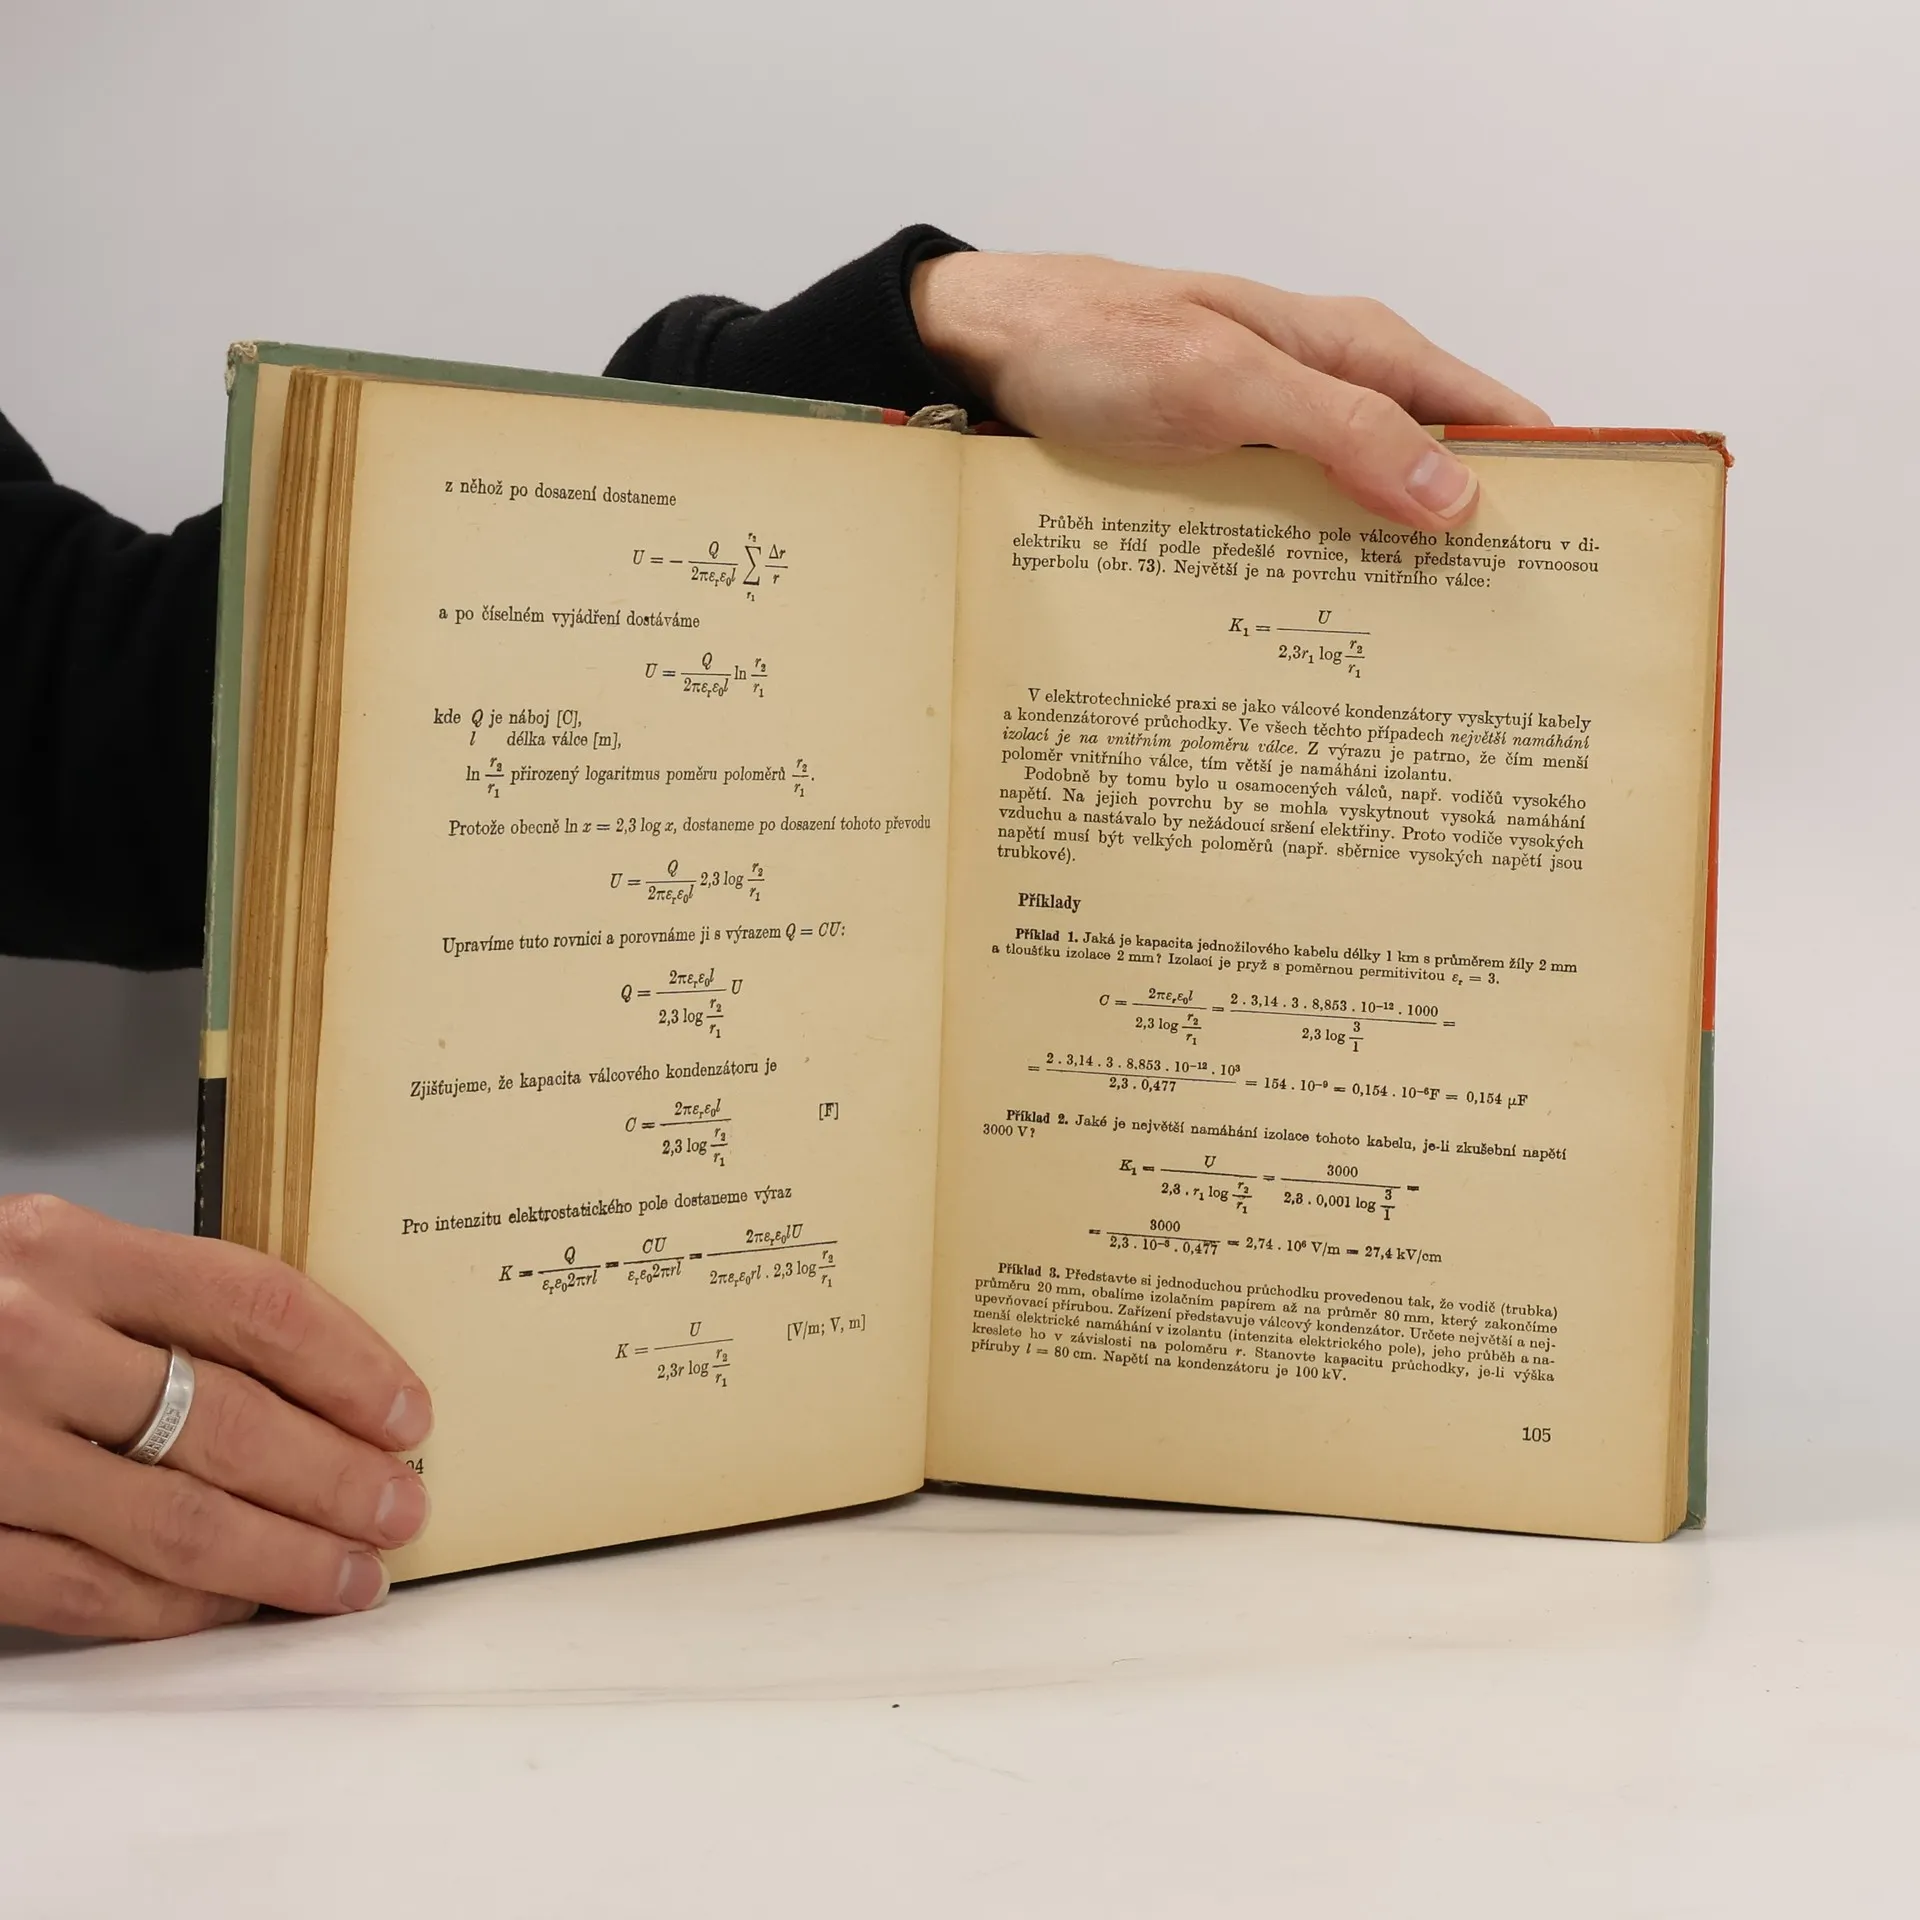 z něhož po dosazení dostaneme
U = − Q/(2πε_rε_0l) ∑_{r₁}^{r₂} Δr/r
a po číselném vyjádření dostáváme
U = Q/(2πε_rε_0l) ln r₂/r₁
kde Q je náboj [C],
l délka válce [m],
ln r₂/r₁ přirozený logaritmus poměru poloměrů r₂/r₁.
Protože obecně ln x = 2,3 log x, dostaneme po dosazení tohoto převodu
U = Q/(2πε_rε_0l) 2,3 log r₂/r₁
Upravíme tuto rovnici a porovnáme ji s výrazem Q = CU:
Q = 2πε_rε_0l/(2,3 log r₂/r₁) U
Zjišťujeme, že kapacita válcového kondenzátoru je
C = 2πε_rε_0l/(2,3 log r₂/r₁) [F]
Pro intenzitu elektrostatického pole dostaneme výraz
K = Q/(ε_rε_02πrl) = CU/(ε_rε_02πrl) = 2πε_rε_0lU/(2πε_rε_0rl . 2,3 log r₂/r₁)
K = U/(2,3r log r₂/r₁) [V/m; V, m]
04
Průběh intenzity elektrostatického pole válcového kondenzátoru v di-
elektriku se řídí podle předešlé rovnice, která představuje rovnoosou
hyperbolu (obr. 73). Největší je na povrchu vnitřního válce:
K₁ = U/(2,3r₁ log r₂/r₁)
V elektrotechnické praxi se jako válcové kondenzátory vyskytují kabely
a kondenzátorové průchodky. Ve všech těchto případech největší namáhání
izolací je na vnitřním poloměru válce. Z výrazu je patrno, že čím menší
poloměr vnitřního válce, tím větší je namáháni izolantu.
Podobně by tomu bylo u osamocených válců, např. vodičů vysokého
napětí. Na jejich povrchu by se mohla vyskytnout vysoká namáhání
vzduchu a nastávalo by nežádoucí sršení elektřiny. Proto vodiče vysokých
napětí musí být velkých poloměrů (např. sběrnice vysokých napětí jsou
trubkové).
Příklady
Příklad 1. Jaká je kapacita jednožilového kabelu délky 1 km s průměrem žíly 2 mm
a tloušťku izolace 2 mm? Izolací je pryž s poměrnou permitivitou ε_r = 3.
C = 2πε_rε_0l/(2,3 log r₂/r₁) = 2 . 3,14 . 3 . 8,853 . 10⁻¹² . 1000/(2,3 log 3/1) =
= 2 . 3,14 . 3 . 8,853 . 10⁻¹² . 10³/(2,3 . 0,477) = 154 . 10⁻⁹ = 0,154 . 10⁻⁶F = 0,154 μF
Příklad 2. Jaké je největší namáhání izolace tohoto kabelu, je-li zkušební napětí
3000 V?
K₁ = U/(2,3 . r₁ log r₂/r₁) = 3000/(2,3 . 0,001 log 3/1) =
= 3000/(2,3 . 10⁻³ . 0,477) = 2,74 . 10⁶ V/m = 27,4 kV/cm
Příklad 3. Představte si jednoduchou průchodku provedenou tak, že vodič (trubka)
průměru 20 mm, obalíme izolačním papírem až na průměr 80 mm, který zakončíme
upevňovací přírubou. Zařízení představuje válcový kondenzátor. Určete největší a nej-
menší elektrické namáhání v izolantu (intenzita elektrického pole), jeho průběh a na-
kreslete ho v závislosti na poloměru r. Stanovte kapacitu průchodky, je-li výška
příruby l = 80 cm. Napětí na kondenzátoru je 100 kV.
105